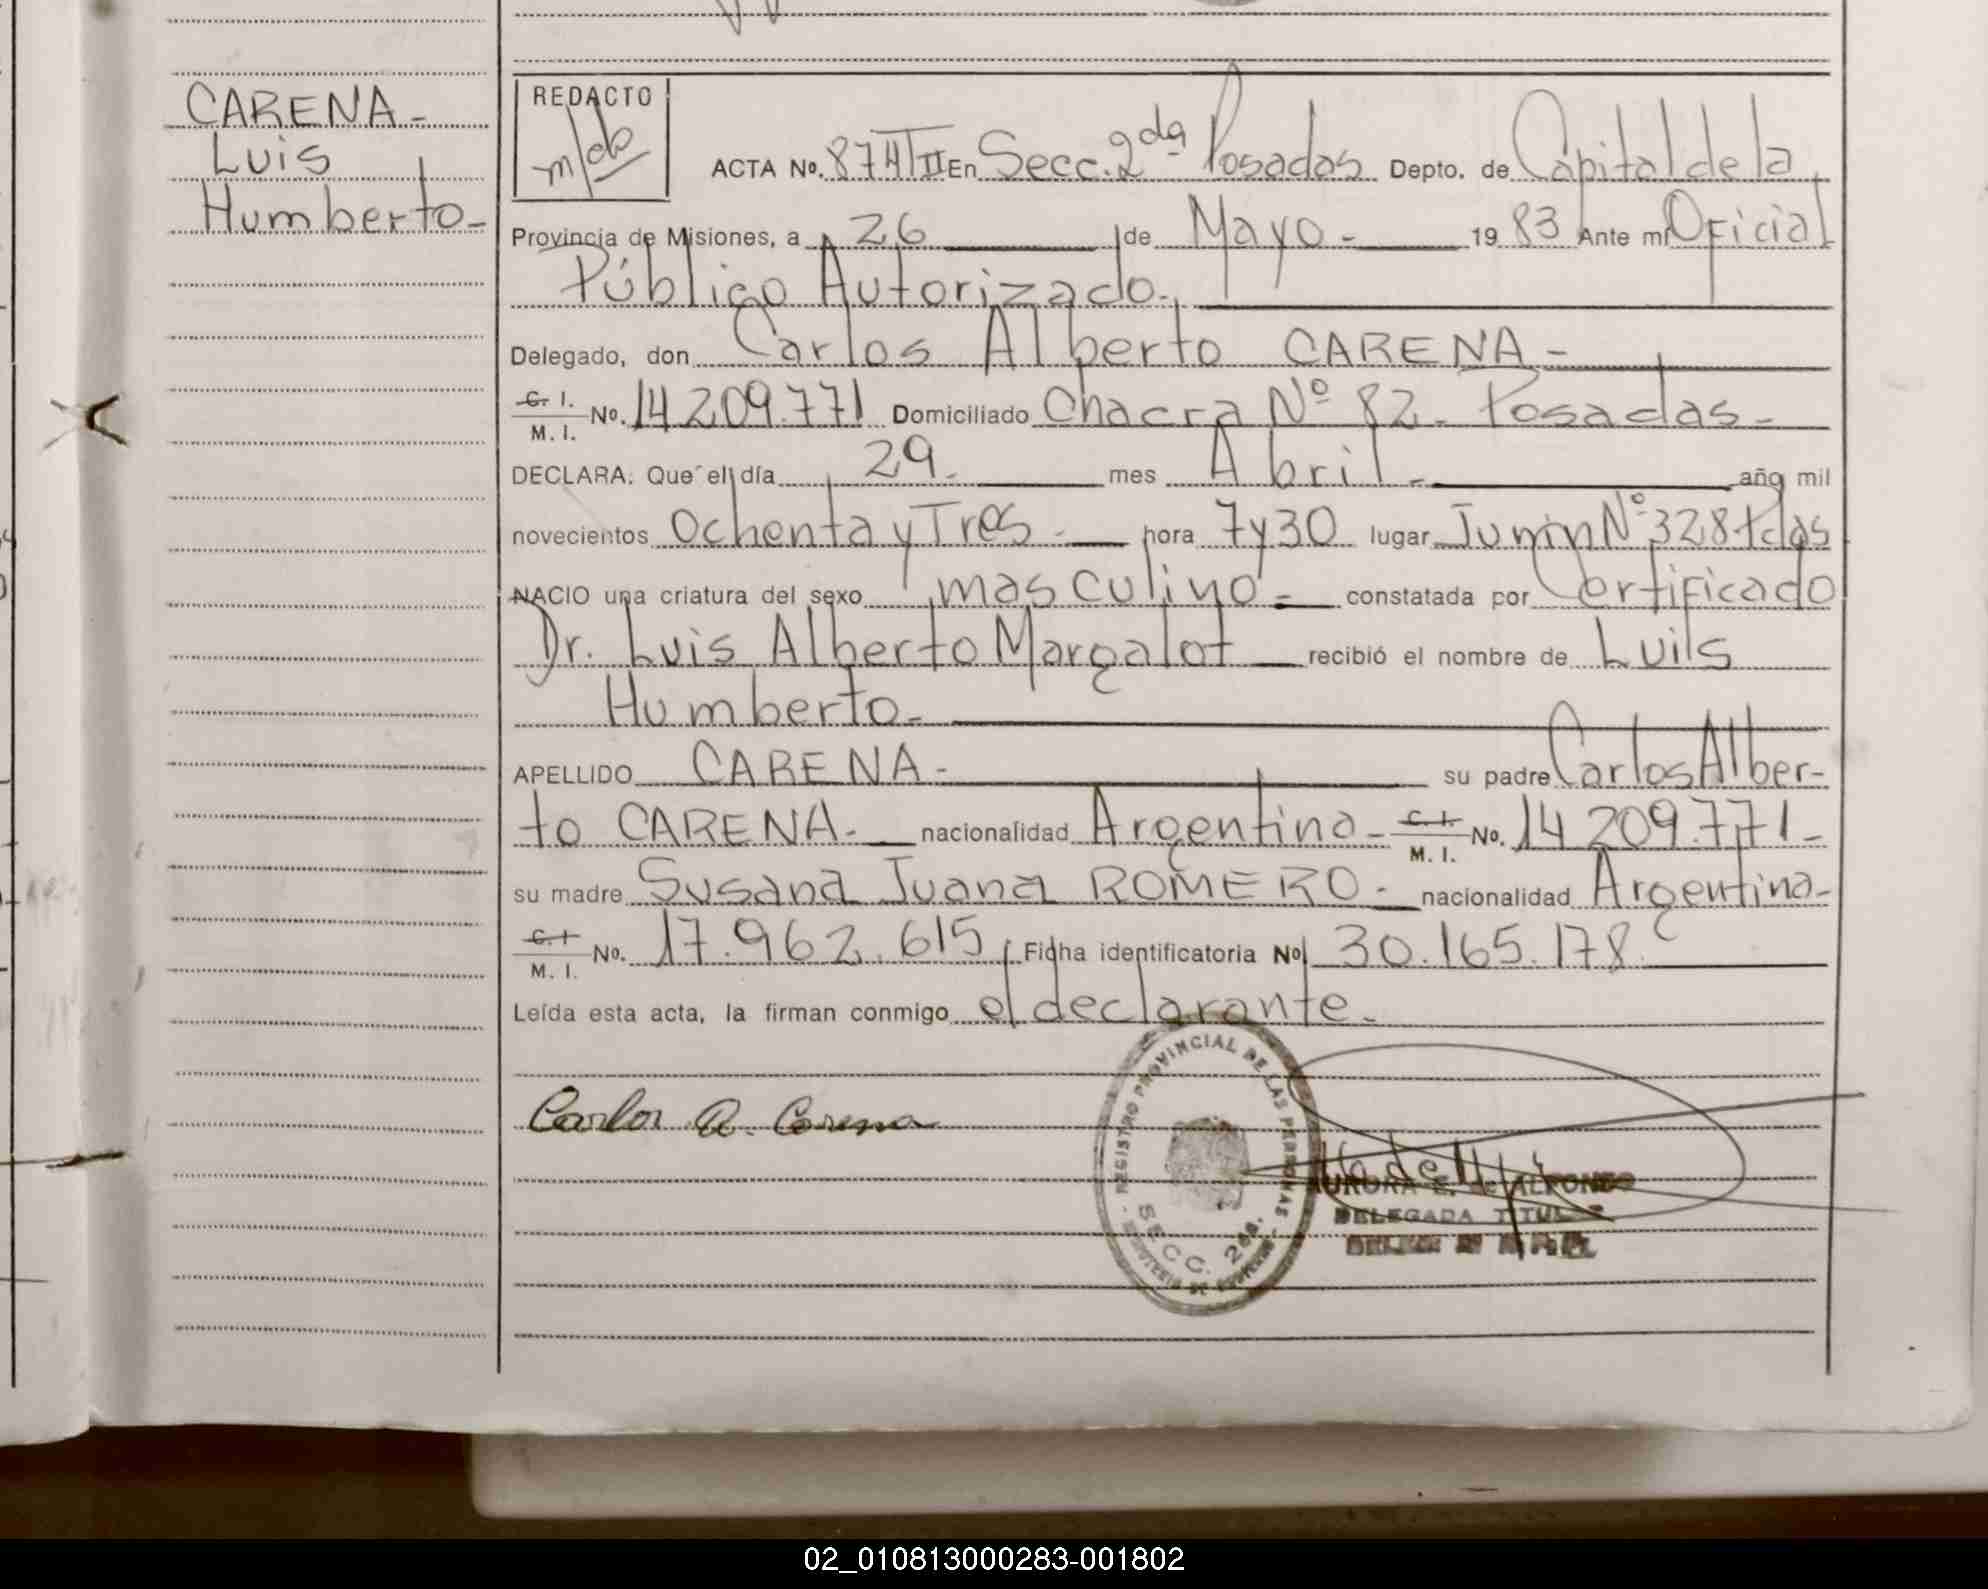 CARENA-
Luis
Humberto-
REDACTO
ACTA No. 874 T II En Secc. 2da Posadas Depto. de Capital de la
Provincia de Misiones, a 26 de Mayo- 1983 Ante mí Oficial
Público Autorizado.
Delegado, don Carlos Alberto CARENA-
C. I.
M. I. No. 14.209.771 Domiciliado Chacra Nº 82- Posadas-
DECLARA: Que el día 29- mes Abril- año mil
novecientos Ochenta y Tres- hora 7 y 30 lugar Junin Nº 328 Pdas
NACIO una criatura del sexo masculino- constatada por Certificado
Dr. Luis Alberto Margalot recibió el nombre de Luis
Humberto-
APELLIDO CARENA- su padre Carlos Alber-
to CARENA- nacionalidad Argentina- C. I.
M. I. No. 14.209.771-
su madre Susana Juana ROMERO- nacionalidad Argentina-
C. I
M. I. No. 17.962.615 Ficha identificatoria No 30.165.178
Leída esta acta, la firman conmigo el declarante-
Carlos A. Carena
REGISTRO PROVINCIAL DE LAS PERSONAS
SECC. 2da.
AURORA E. de ALFONSO
DELEGADA TITULAR
02_010813000283-001802